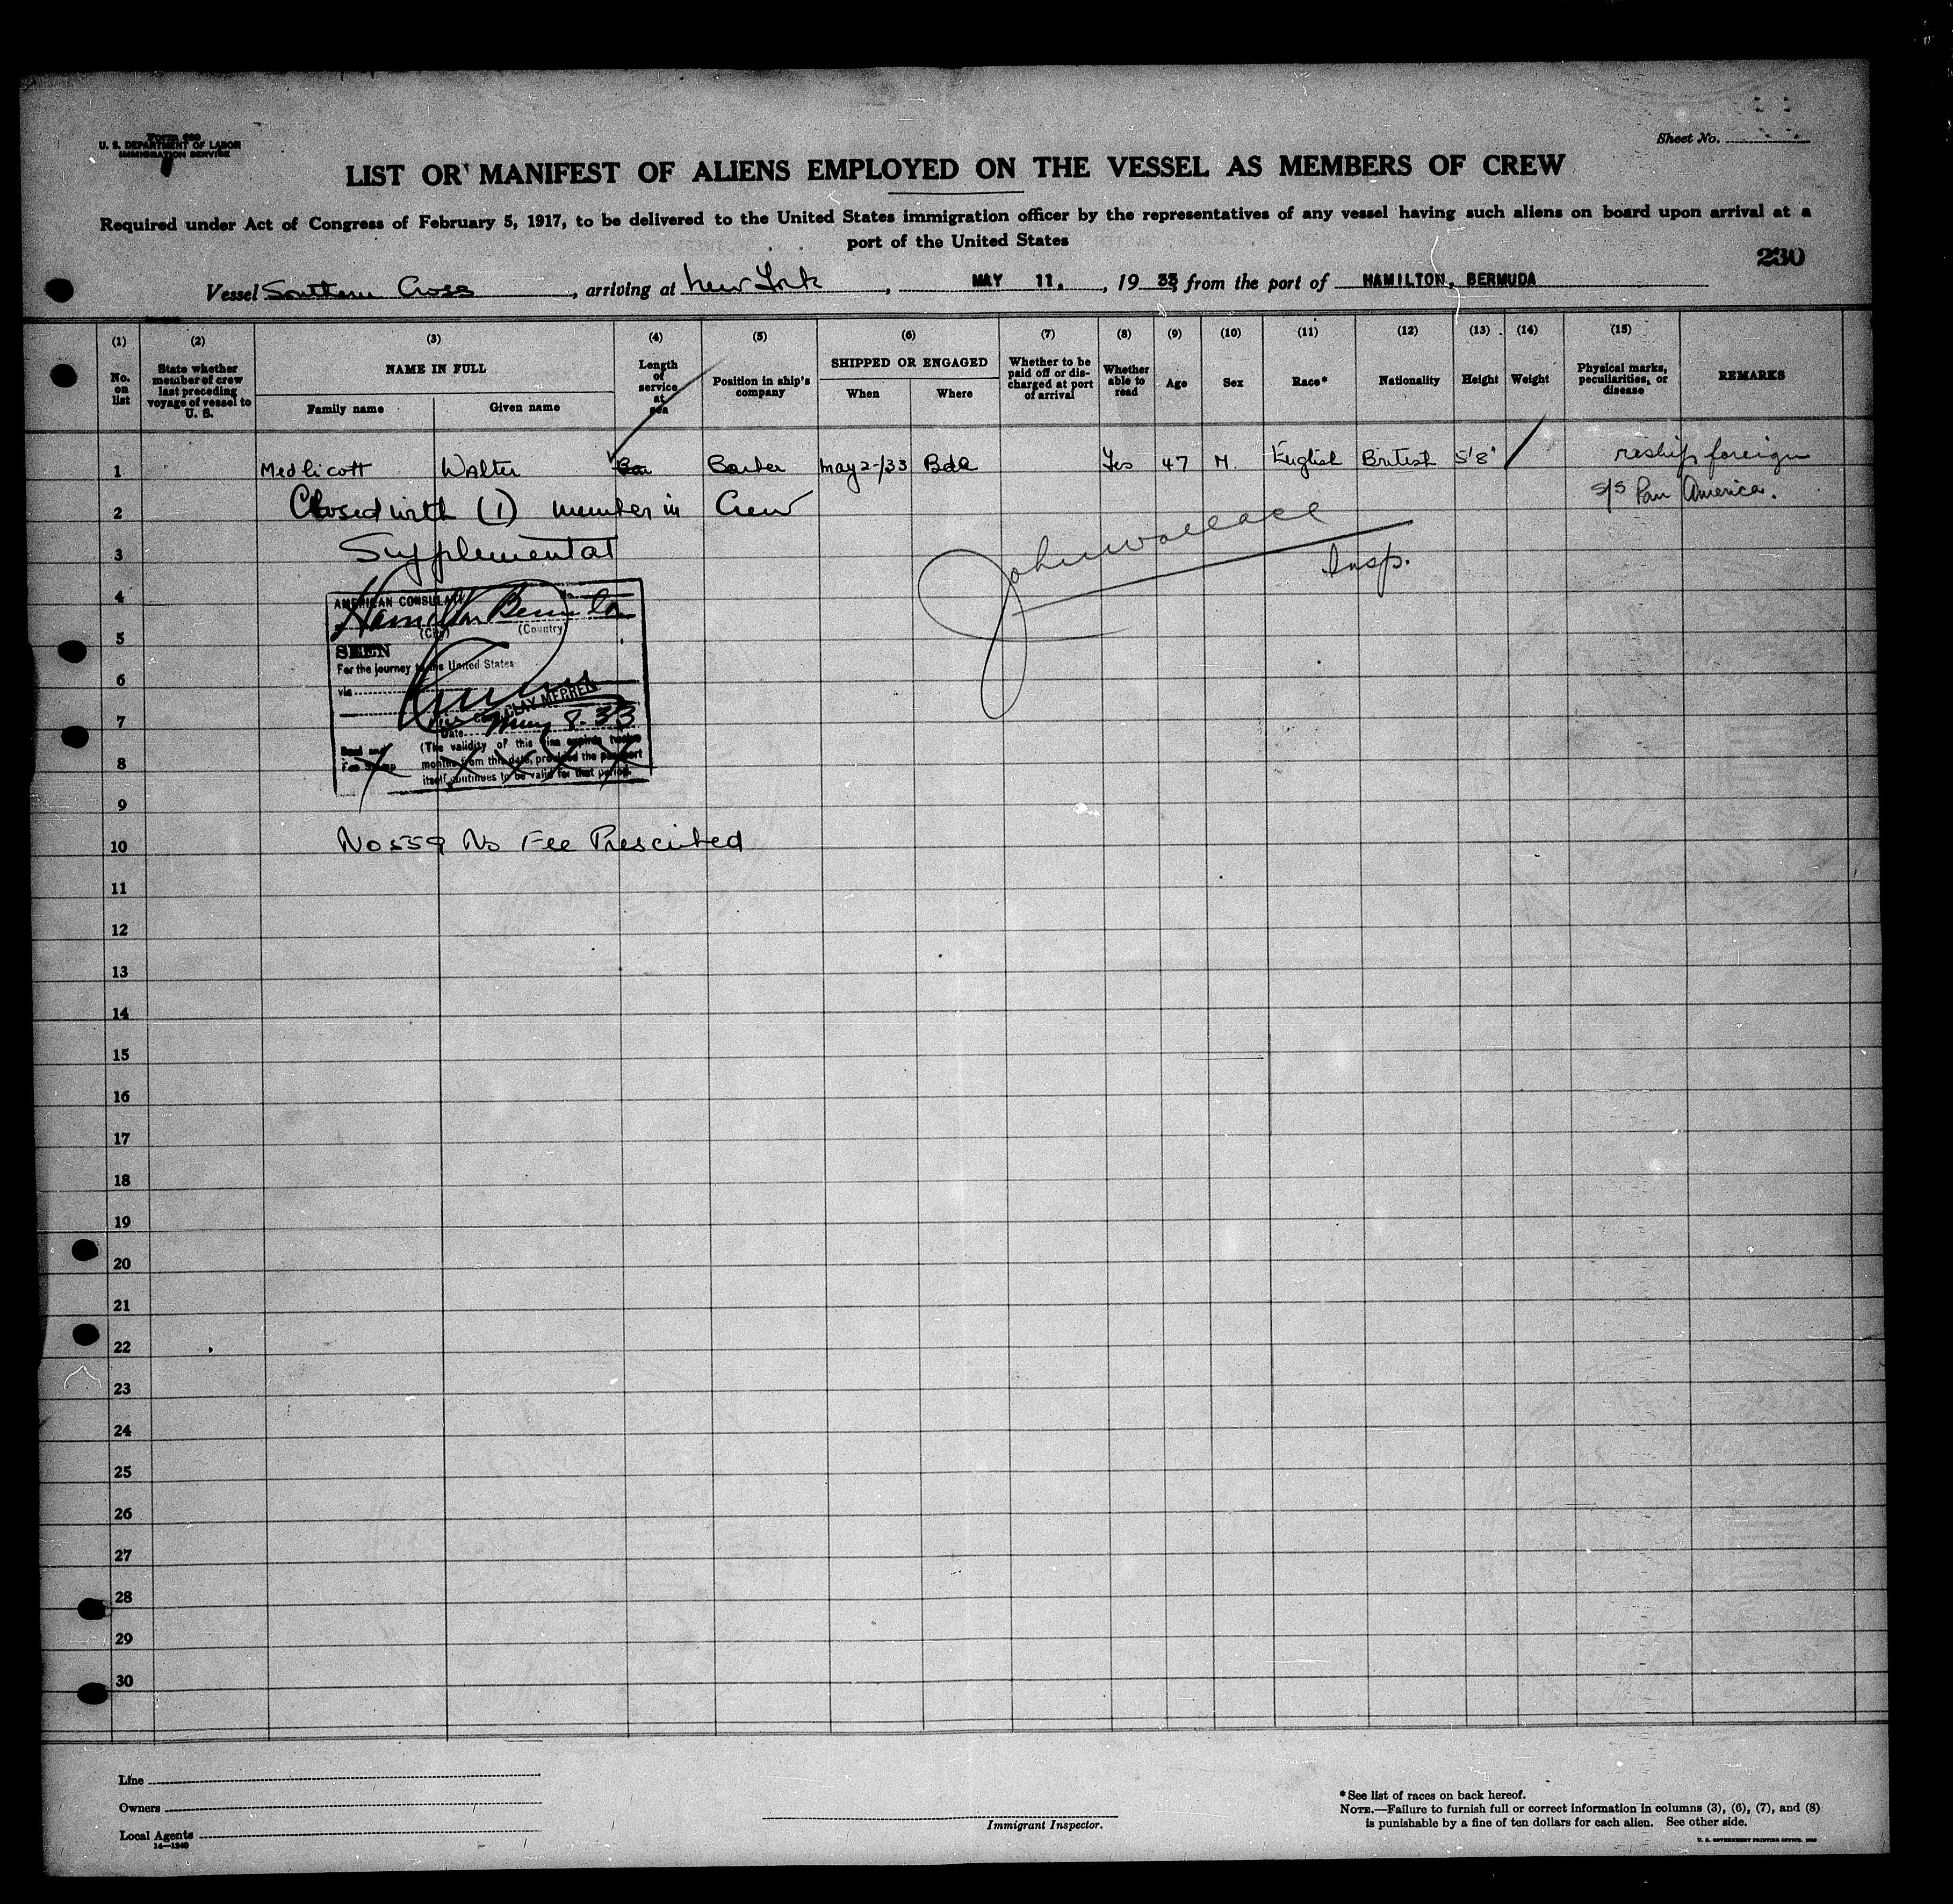 Form 680
U. S. DEPARTMENT OF LABOR
IMMIGRATION SERVICE
Sheet No.
LIST OR MANIFEST OF ALIENS EMPLOYED ON THE VESSEL AS MEMBERS OF CREW
Required under Act of Congress of February 5, 1917, to be delivered to the United States immigration officer by the representatives of any vessel having such aliens on board upon arrival at a
port of the United States
230
Vessel Southern Cross, arriving at New York, MAY 11, 1933, from the port of HAMILTON, BERMUDA
(1) (2) (3) (4) (5) (6) (7) (8) (9) (10) (11) (12) (13) (14) (15)
No. on list
State whether member of crew last preceding voyage of vessel to U. S.
NAME IN FULL
Family name Given name
Length of service at sea
Position in ship's company
SHIPPED OR ENGAGED
When Where
Whether to be paid off or discharged at port of arrival
Whether able to read
Age
Sex
Race*
Nationality
Height
Weight
Physical marks, peculiarities, or disease
REMARKS
1 Medlicott Walter Barber May 2-/33 Bda Yes 47 M. English British 5'8" reship foreign
s/s Pan America.
2 Closed with (1) member in Crew
3 Supplemental
John Wallace
Insp.
4
AMERICAN CONSULATE
Hamilton Bermuda
(City) (Country)
5
SEEN
For the journey to the United States
6
via
CLAY MERRELL
7
Date May 8. 33
(The validity of this visa expires twelve
months from this date, provided the passport
itself continues to be valid for that period.
Seal and
Fee Stamp
8
9
10 No 559 No Fee Prescribed
11
12
13
14
15
16
17
18
19
20
21
22
23
24
25
26
27
28
29
30
Line
Owners
Local Agents
14—1240
Immigrant Inspector.
*See list of races on back hereof.
NOTE.—Failure to furnish full or correct information in columns (3), (6), (7), and (8)
is punishable by a fine of ten dollars for each alien. See other side.
U. S. GOVERNMENT PRINTING OFFICE